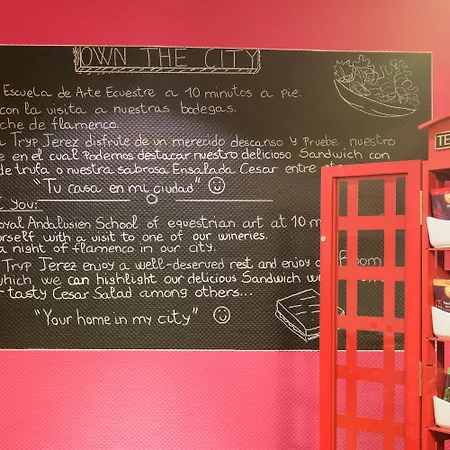 OWN THE CITY
Escuela de Arte Ecuestre a 10 minutos a pie.
con la visita a nuestras bodegas.
che de flamenco.
Tryp Jerez disfrute de un merecido descanso y Pruebe nuestro
e en el cual Podemos destacar nuestro delicioso Sandwich con
de trufa o nuestra sabrosa Ensalada Cesar entre
"Tu casa en mi ciudad"
You:
oyal Andalusien School of equestrian art at 10 m
orself with a visit to one of our wineries
a night of flamenco in our city.
Tryp Jerez enjoy a well-deserved rest and enjoy our room
which we can highlight our delicious Sandwich w
r tasty Cesar Salad among others...
"Your home in my city"
TE